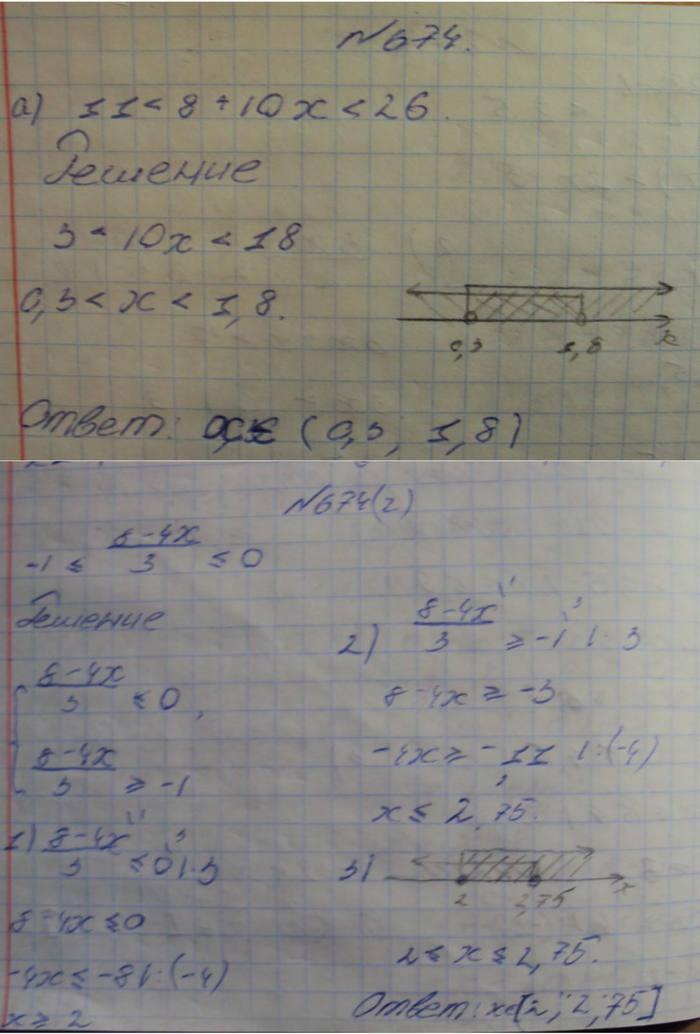 №674.
а) 11 < 8 + 10x < 26.
Решение
3 < 10x < 18
0,3 < x < 1,8.
0,3 1,8 x
Ответ: x∈ (0,3; 1,8)
№674(2)
-1 ≤ (8-4x)/3 ≤ 0
Решение
{ (8-4x)/3 ≤ 0,
(8-4x)/3 ≥ -1
1) (8-4x)/3 ≤ 0 | · 3
8-4x ≤ 0
-4x ≤ -8 | : (-4)
x ≥ 2
2) (8-4x)/3 ≥ -1 | · 3
8-4x ≥ -3
-4x ≥ -11 | : (-4)
x ≤ 2,75.
3)
2 2,75 x
2 ≤ x ≤ 2,75.
Ответ: x∈[2; 2,75]